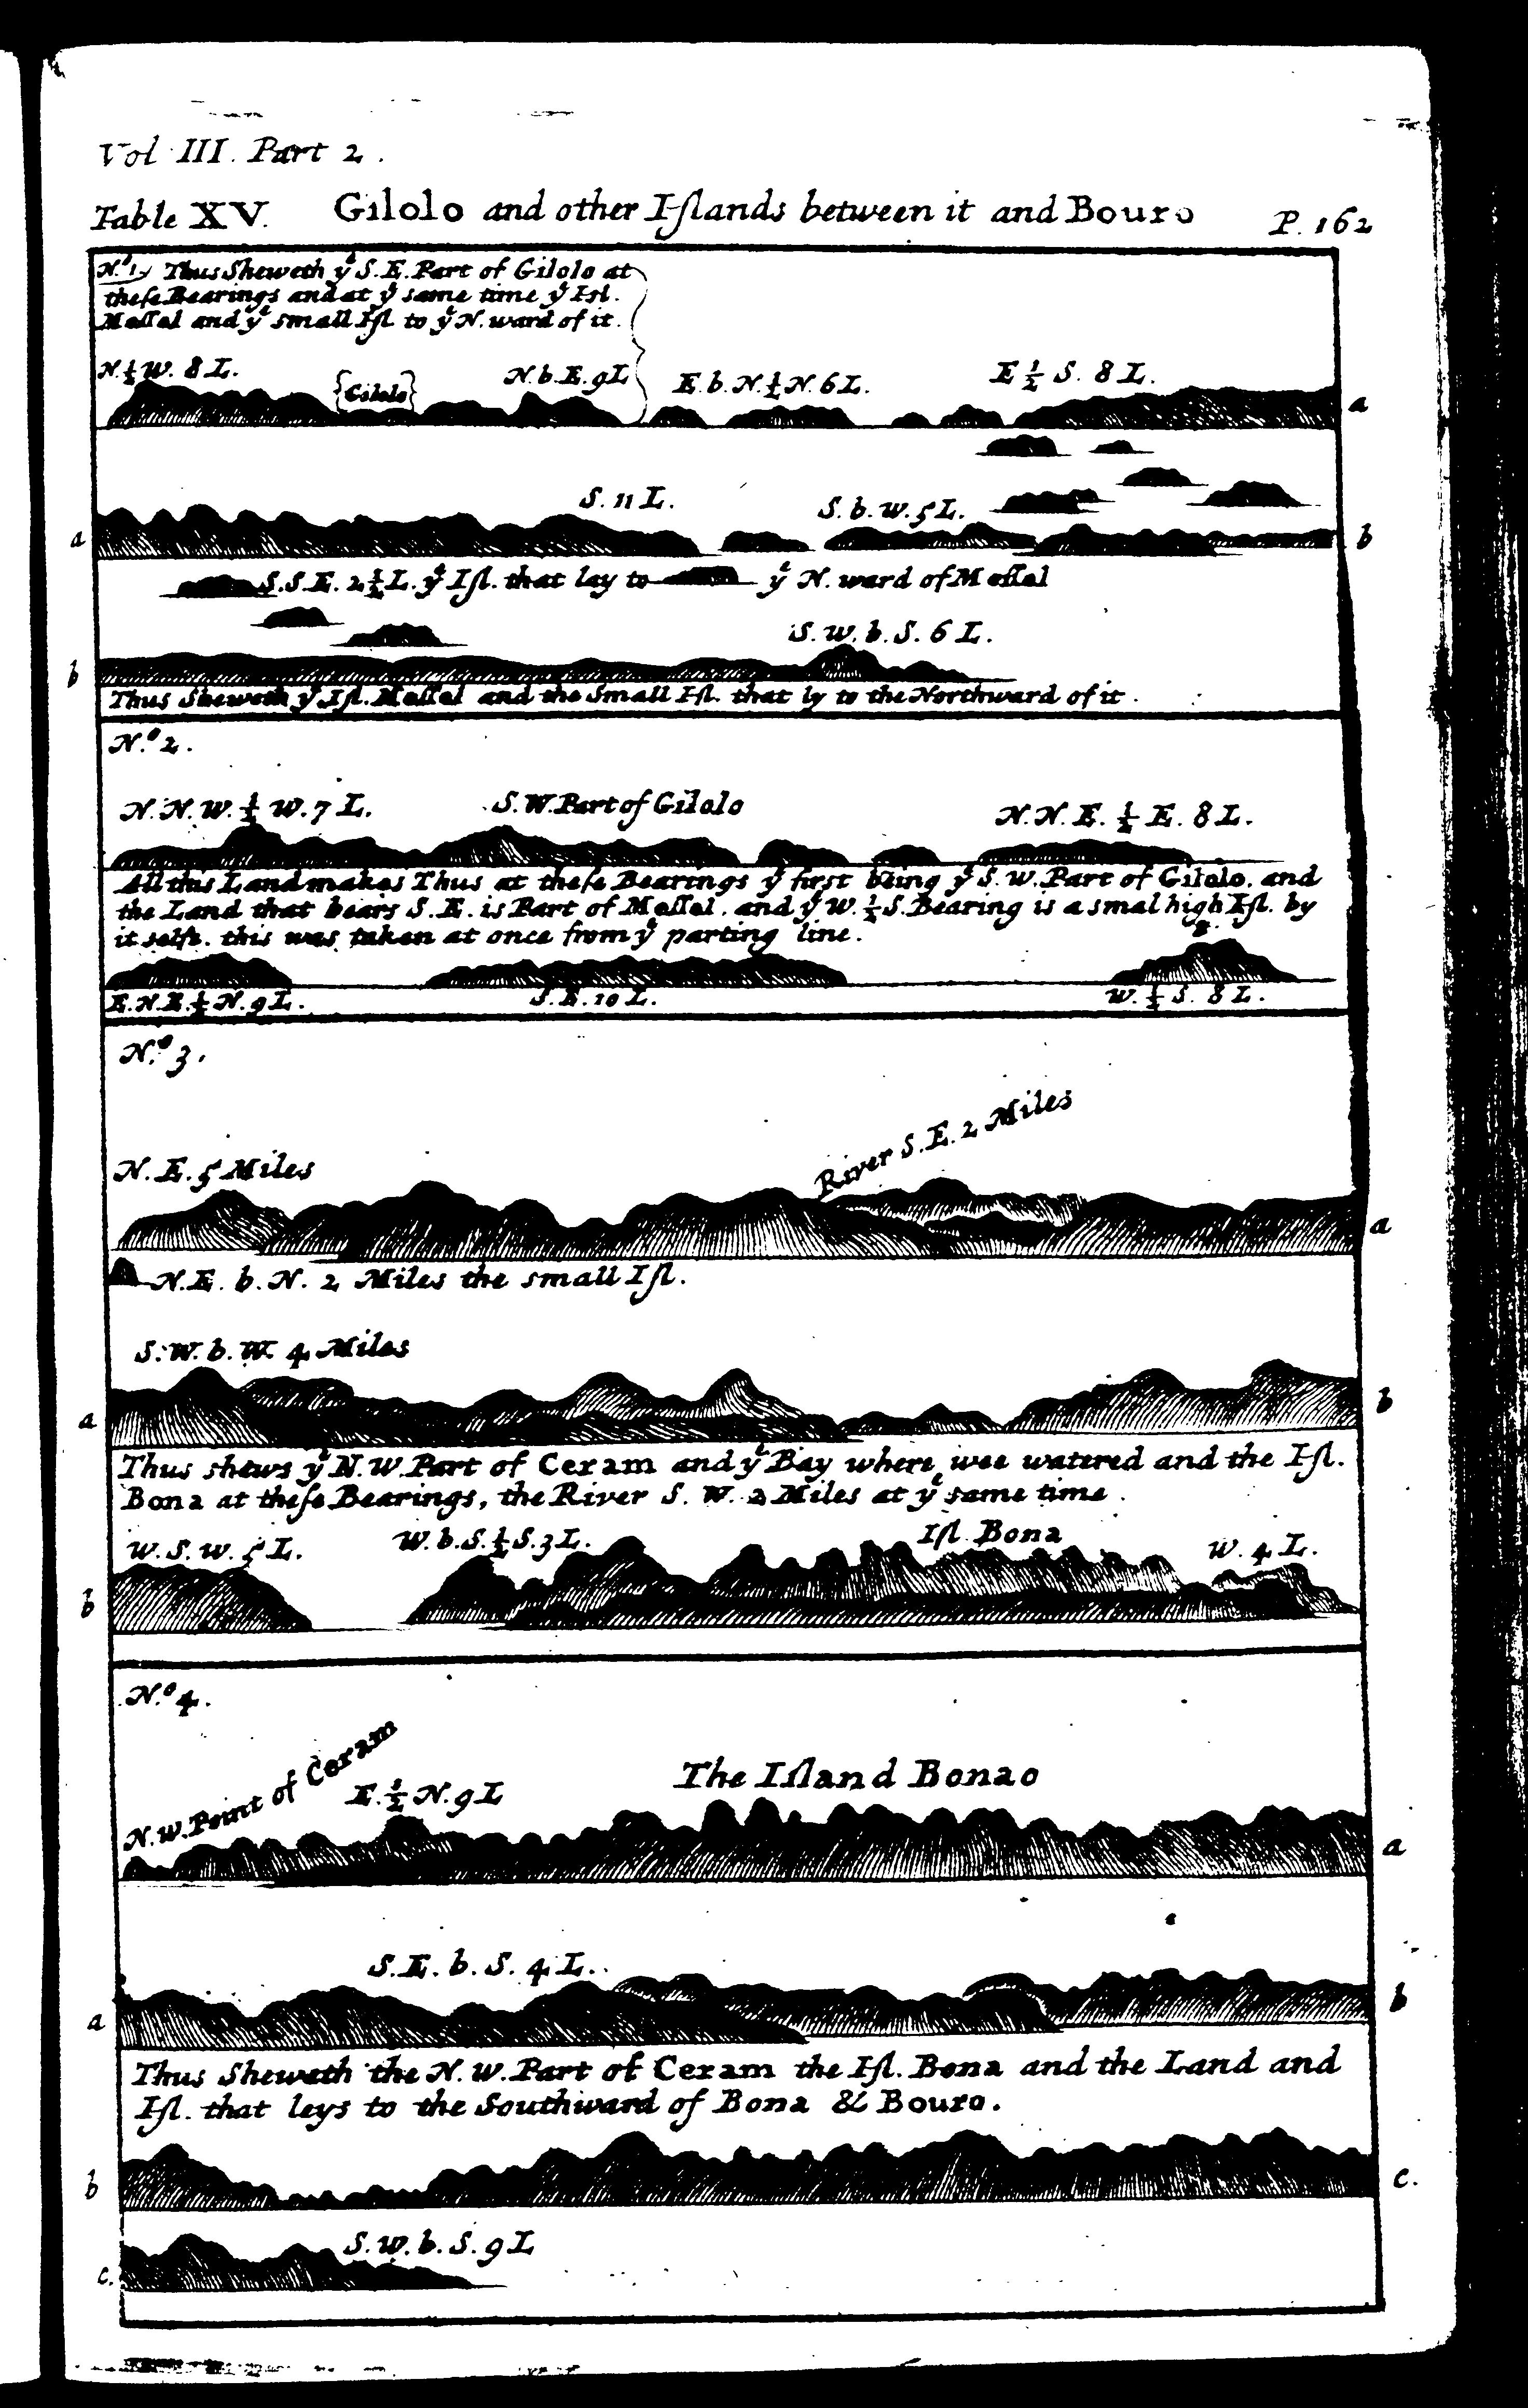 Vol III. Part 2.
Table XV. Gilolo and other Iſlands between it and Bouro P. 162
N.º 1. Thus Sheweth yᵉ S.E. Part of Gilolo at
theſe Bearings and at yᵉ same time yᵉ Isl.
Meſſal and yᵉ small Iſl to yᵉ N. ward of it.
N. ½ W. 8 L. Gilolo N. b. E. 9 L E. b. N. ½ N. 6 L. E ½ S. 8 L.
a
S. 11 L. S. b. W. 5 L.
a b
S.S.E. 2 ½ L. yᵉ Iſl. that lay to yᵉ N. ward of Meſſal
S. W. b. S. 6 L.
b
Thus Sheweth yᵉ Iſl. Meſſal and the Small Iſl. that ly to the Northward of it.
N.º 2.
N. N. W. ½ W. 7 L. S. W. Part of Gilolo N. N. E. ½ E. 8 L.
All this Land makes Thus at theſe Bearings yᵉ first being yᵉ S. W. Part of Gilolo. and
the Land that bears S. E. is Part of Meſſal. and yᵉ W. ½ S. Bearing is a smal high Iſl. by
it selfe. this was taken at once from yᵉ parting line.
E. N. E. ½ N. 9 L. S. E. 10 L. W. ½ S. 8 L.
N.º 3.
River S. E. 2 Miles
N. E. 5 Miles
a
N. E. b. N. 2 Miles the small Iſl.
S. W. b. W. 4 Miles
a b
Thus shews yᵉ N. W. Part of Ceram and yᵉ Bay where wee watered and the Iſl.
Bona at theſe Bearings, the River S. W. 2 Miles at yᵉ same time.
W. S. W. 5 L. W. b. S. ½ S. 3 L. Iſl. Bona W. 4 L.
b
N.º 4.
N. W. Point of Ceram E. ½ N. 9 L The Iſland Bonao
a
S. E. b. S. 4 L.
a b
Thus Sheweth the N. W. Part of Ceram the Iſl. Bona and the Land and
Iſl. that leys to the Southward of Bona & Bouro.
b c.
S. W. b. S. 9 L
c.